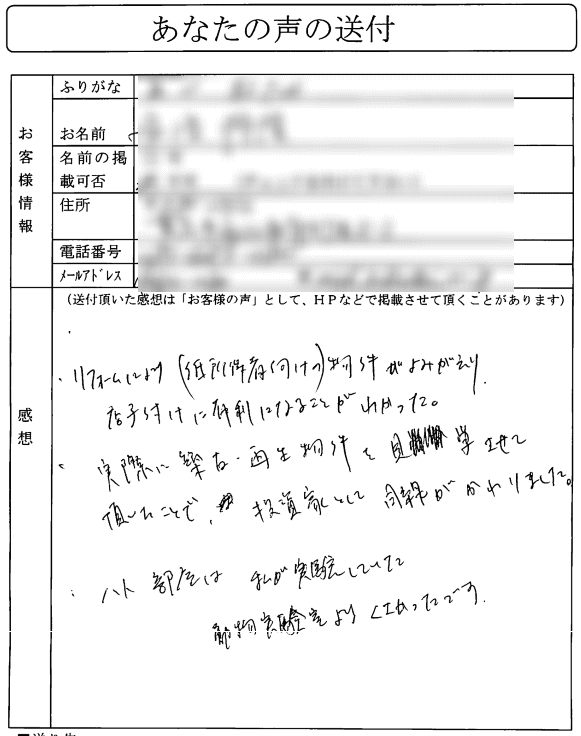 あなたの声の送付
お客様情報
ふりがな
お名前
名前の掲
載可否
住所
電話番号
メールアドレス
感想
(送付頂いた感想は「お客様の声」として、HPなどで掲載させて頂くことがあります)
・リフォームにより(低所得者向けの)物件がよみがえり
店子付けに有利になることがわかった。
・実際に築古・再生物件を見学させて
頂いたことで、投資家として目線がかわりました。
・ハト部屋は私が実験していた
動物実験室よりくさかったです。